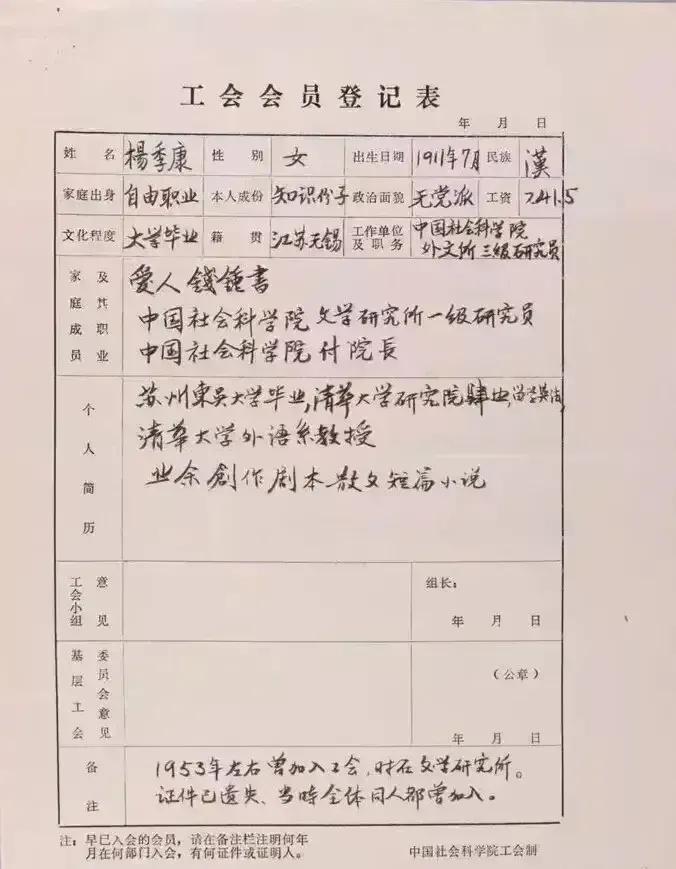 工会会员登记表
年 月 日
姓名 楊季康 性别 女 出生日期 1911年7月 民族 漢
家庭出身 自由职业 本人成份 知识份子 政治面貌 无党派 工资 241.5
文化程度 大学毕业 籍贯 江苏无锡 工作单位及职务 中国社会科学院
外文所 三级研究员
家庭成员及其职业
爱人錢鍾書
中国社会科学院文学研究所一级研究员
中国社会科学院付院長
个人简历
苏州東吴大学毕业,清華大学研究院肄业,留学英法,
清華大学外語系教授
业余創作剧本散文短篇小说
工会小组意见 组长:
年 月 日
基层工会委员会意见 (公章)
年 月 日
备注
1953年左右曾加入工会,时在文学研究所。
证件已遗失、当時全体同人都曾加入。
注:早已入会的会员,请在备注栏注明何年
月在何部门入会,有何证件或证明人。
中国社会科学院工会制